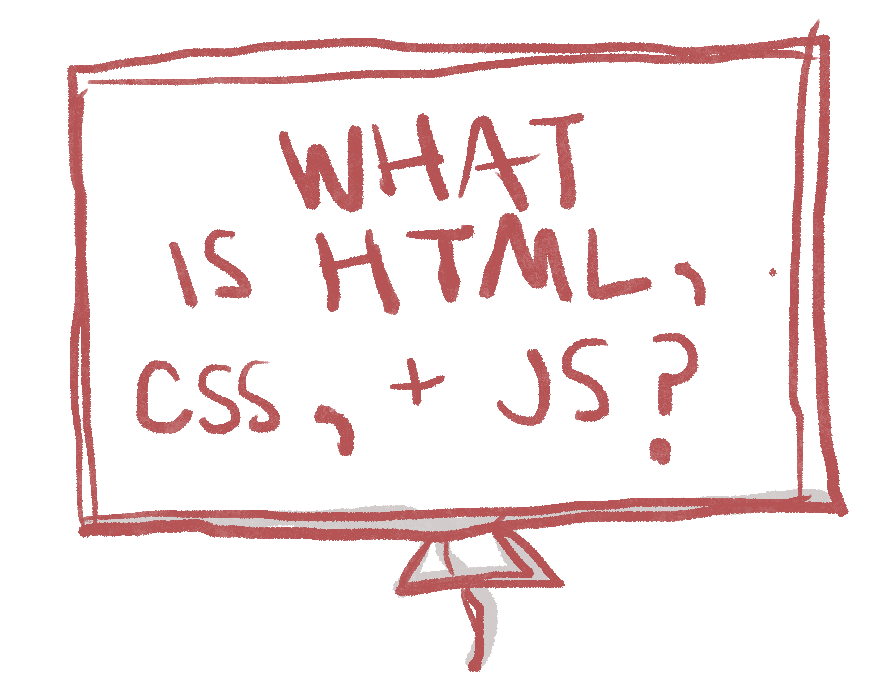 WHAT
IS HTML,
CSS, + JS?